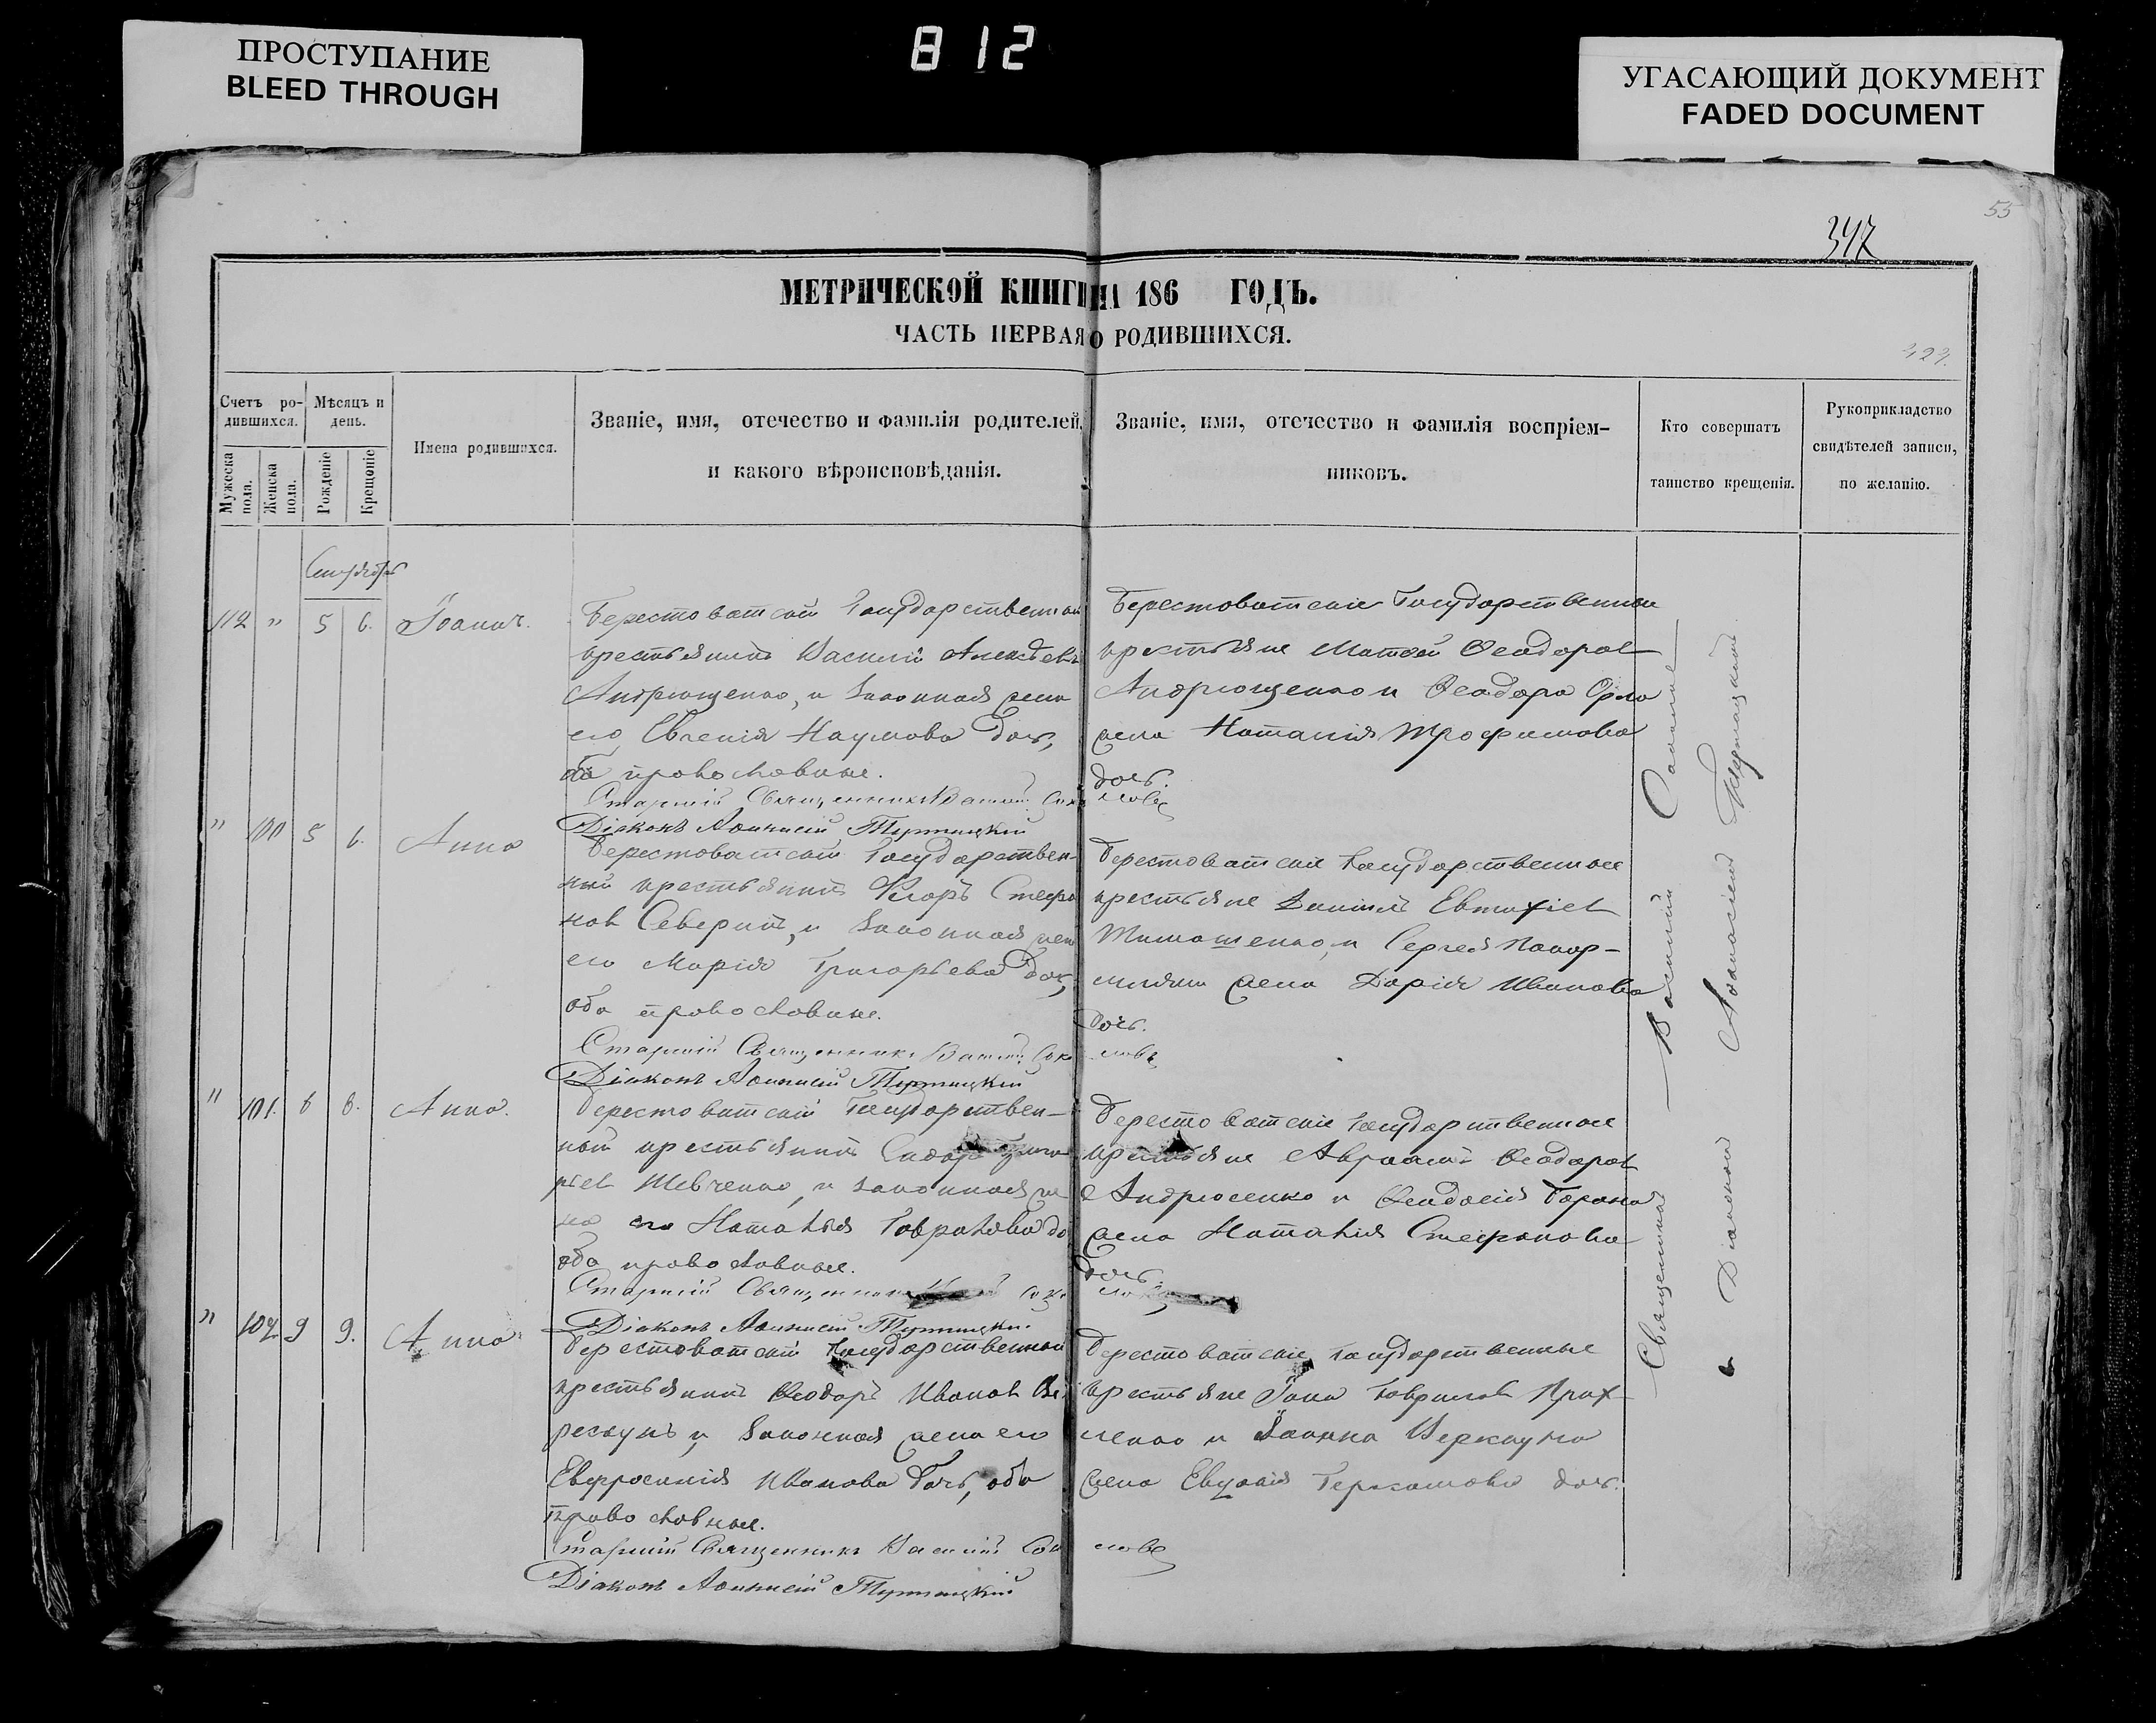 ПРОСТУПАНИЕ
BLEED THROUGH
812
УГАСАЮЩИЙ ДОКУМЕНТ
FADED DOCUMENT
55
347
МЕТРИЧЕСКОЙ КНИГИ НА 186 ГОДЪ.
ЧАСТЬ ПЕРВАЯ О РОДИВШИХСЯ.
Счетъ ро-
дившихся.
Мѣсяцъ и
день.
Мужеска
пола.
Женска
пола.
Рожденіе
Крещеніе
Имена родившихся.
Званіе, имя, отечество и фамилія родителей,
и какого вѣроисповѣданія.
Званіе, имя, отечество и фамилія воспріем-
никовъ.
Кто совершатъ
таинство крещенія.
Рукоприкладство
свидѣтелей записи,
по желанію.
112 " 5 6. Іоаннъ.
Берестоватскій Государственный
крестьянинъ Василій Алексѣевъ
Андрющенко, и законная жена
его Евгенія Наумова дочь,
оба православные.
Старшій Священникъ Василій Соко
Діаконъ Аѳанасій
Берестоватскіе Государственные
крестьяне Матѳей Ѳеодоровъ
Андрющенко и Ѳеодора Орла
жена Наталія Трофимова
дочь.
ловъ
" 100 5 6. Анна
Берестоватскій Государствен-
ный крестьянинъ Егоръ Стефа
новъ Северинъ, и законная жена
его Марія Григорьева дочь,
оба православные.
Старшій Священникъ Василій Соко
Діаконъ Аѳанасій
Берестоватскіе Государственные
крестьяне Даніилъ Евтихіевъ
Тимошенко, и Сергея
жена Дарія Иванова
дочь.
ловъ
" 101. 6 8. Анна.
Берестоватскій Государствен-
ный крестьянинъ Сидоръ
Шевченко, и законная же
на его Наталія Гаврилова до
оба православные.
Старшій Священникъ Соко
Діаконъ Аѳанасій
Берестоватскіе Государственные
крестьяне Авраамъ Ѳеодоровъ
Андрюсенко и Ѳеодосія Барана
жена Наталія Стефанова
дочь.
" 102. 9 9. Анна.
Берестоватскій Государственный
крестьянинъ Ѳеодоръ Ивановъ
и законная жена его
Евфросинія Иванова дочь, оба
православные.
Старшій Священникъ Василій Соко
Діаконъ Аѳанасій
Берестоватскіе Государственные
крестьяне Гавриловъ
и Іоанна
жена дочь.
ловъ
Священникъ Василій
и Діаконъ Аѳанасій